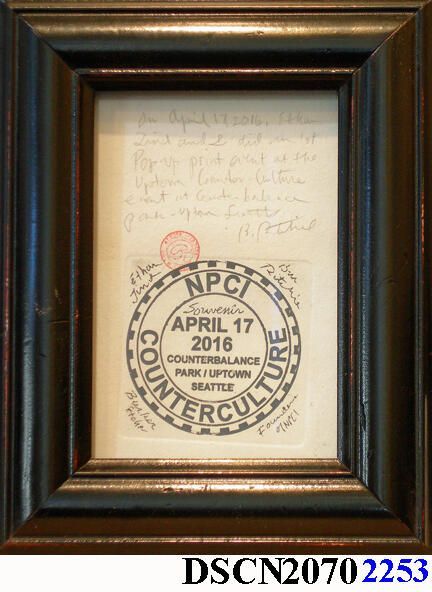 On April 17, 2016, Ethan
Lind and I did our 1st
Pop-up print event at the
Uptown Counter-Culture
event at Counterbalance
park - Uptown Seattle
Ethan
Lind
Bill
Ritchie
NPCI
Souvenir
APRIL 17
2016
COUNTERBALANCE
PARK / UPTOWN
SEATTLE
COUNTERCULTURE
Founders
of NPCI
DSCN2070 2253